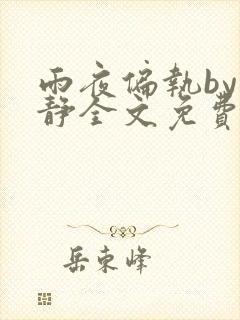 雨夜偏執by
静全文免費
岳东峰